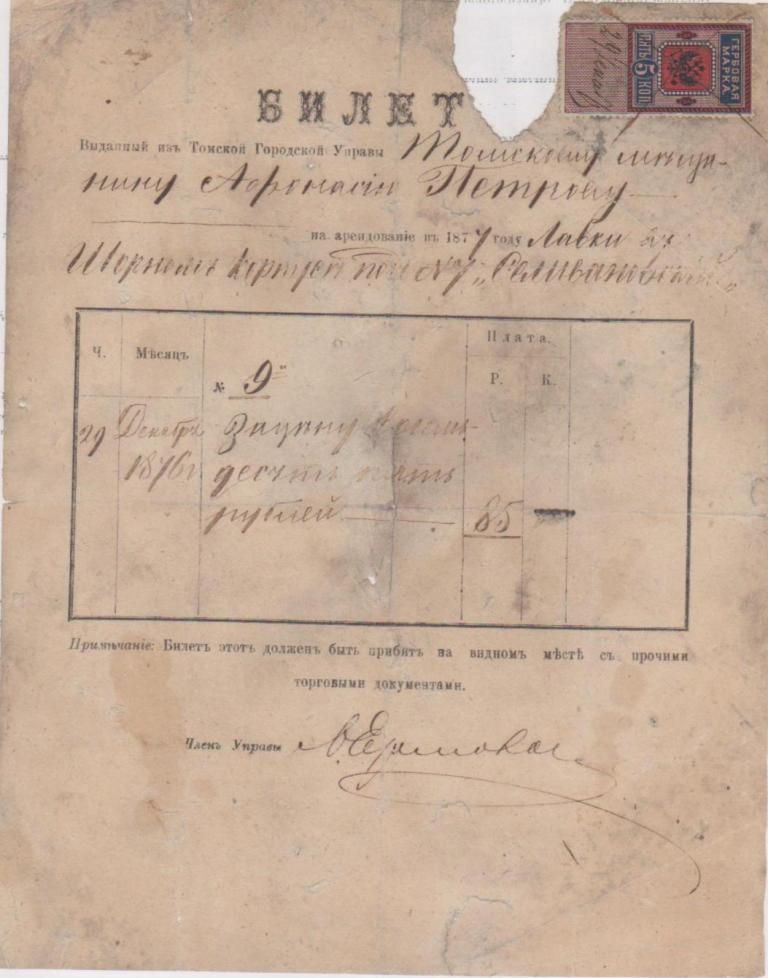 ГЕРБОВАЯ МАРКА
ПЯТЬ 5 КОП.
БИЛЕТ
Выданный изъ Томской Городской Управы Томскому мѣща-
нину Афонасію Петрову
на арендованіе въ 1877 году Лавки въ
корпусѣ под №7 „Селивановскій“
Ч. Мѣсяцъ № 9 Плата.
Р. К.
29 Декабря Зацѣну восемь-
1876г десятъ пять
рублей 85 —
Примѣчаніе: Билетъ этотъ долженъ быть прибитъ на видномъ мѣстѣ съ прочими
торговыми документами.
Членъ Управы